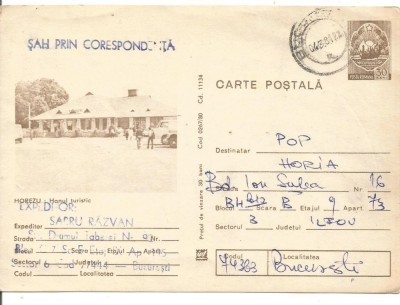 ŞAH PRIN CORESPONDENŢĂ
CARTE POŞTALĂ
HOREZU - Hanul turistic
EXPEDITOR:
SAPRU RĂZVAN
Expeditor
Strada Drumul Taberei Nr.
Blocul Scara Etajul Ap.
Sectorul Județul
Bucureşti
Codul Localitatea
Cod 0267/80 Cd. 11134
Preţul de vînzare 30 bani
POP
Destinatar
HORIA
Bd. Ion Nr 16
Blocul Scara B Etajul 9 Apart 73
3 ILFOV
Sectorul Judeţul
Codul Localitatea
74383 Bucureşti